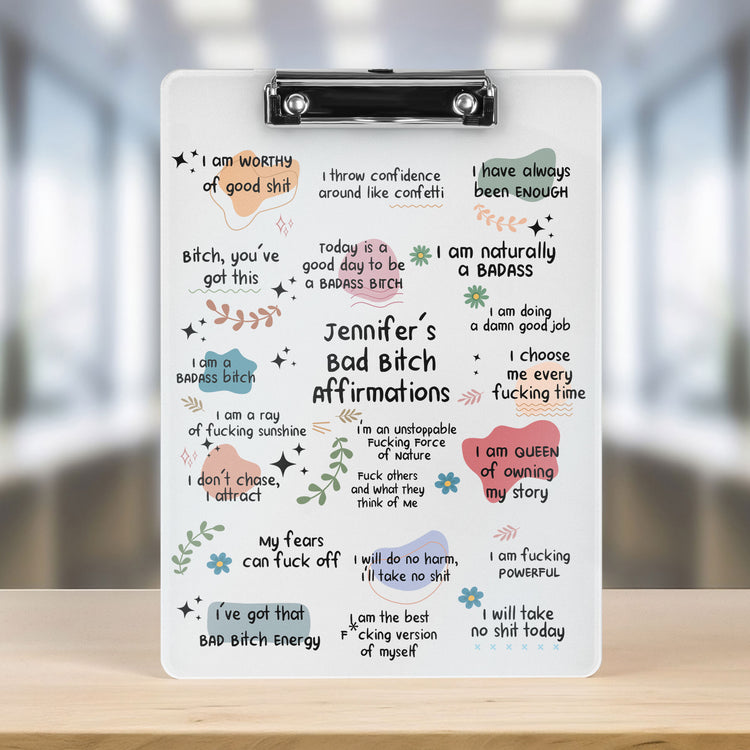 I am WORTHY
of good shit
I throw confidence
around like confetti
I have always
been ENOUGH
Bitch, you've
got this
Today is a
good day to be
a BADASS BITCH
I am naturally
a BADASS
I am doing
a damn good job
Jennifer's
Bad Bitch
Affirmations
I am a
BADASS bitch
I choose
me every
fucking time
I am a ray
of fucking sunshine
I'm an unstoppable
Fucking Force
of Nature
I don't chase,
I attract
Fuck others
and What They
Think of Me
I am QUEEN
of owning
my story
My fears
can fuck off
I will do no harm,
I'll take no shit
I am fucking
POWERFUL
I've got that
BAD Bitch Energy
I am the best
F*cking version
of myself
I will take
no shit today